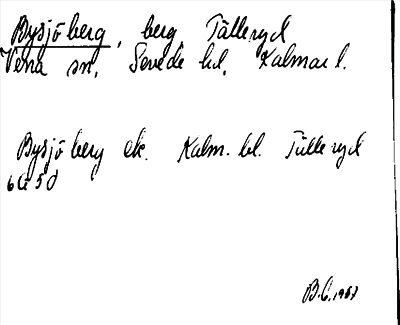 Bysjöberg, berg Tälleryd
Vena sn, Sevede hd. Kalmar l.
Bysjöberg ek. Kalm. bl. Tälleryd
6G5d
B.C. 1967